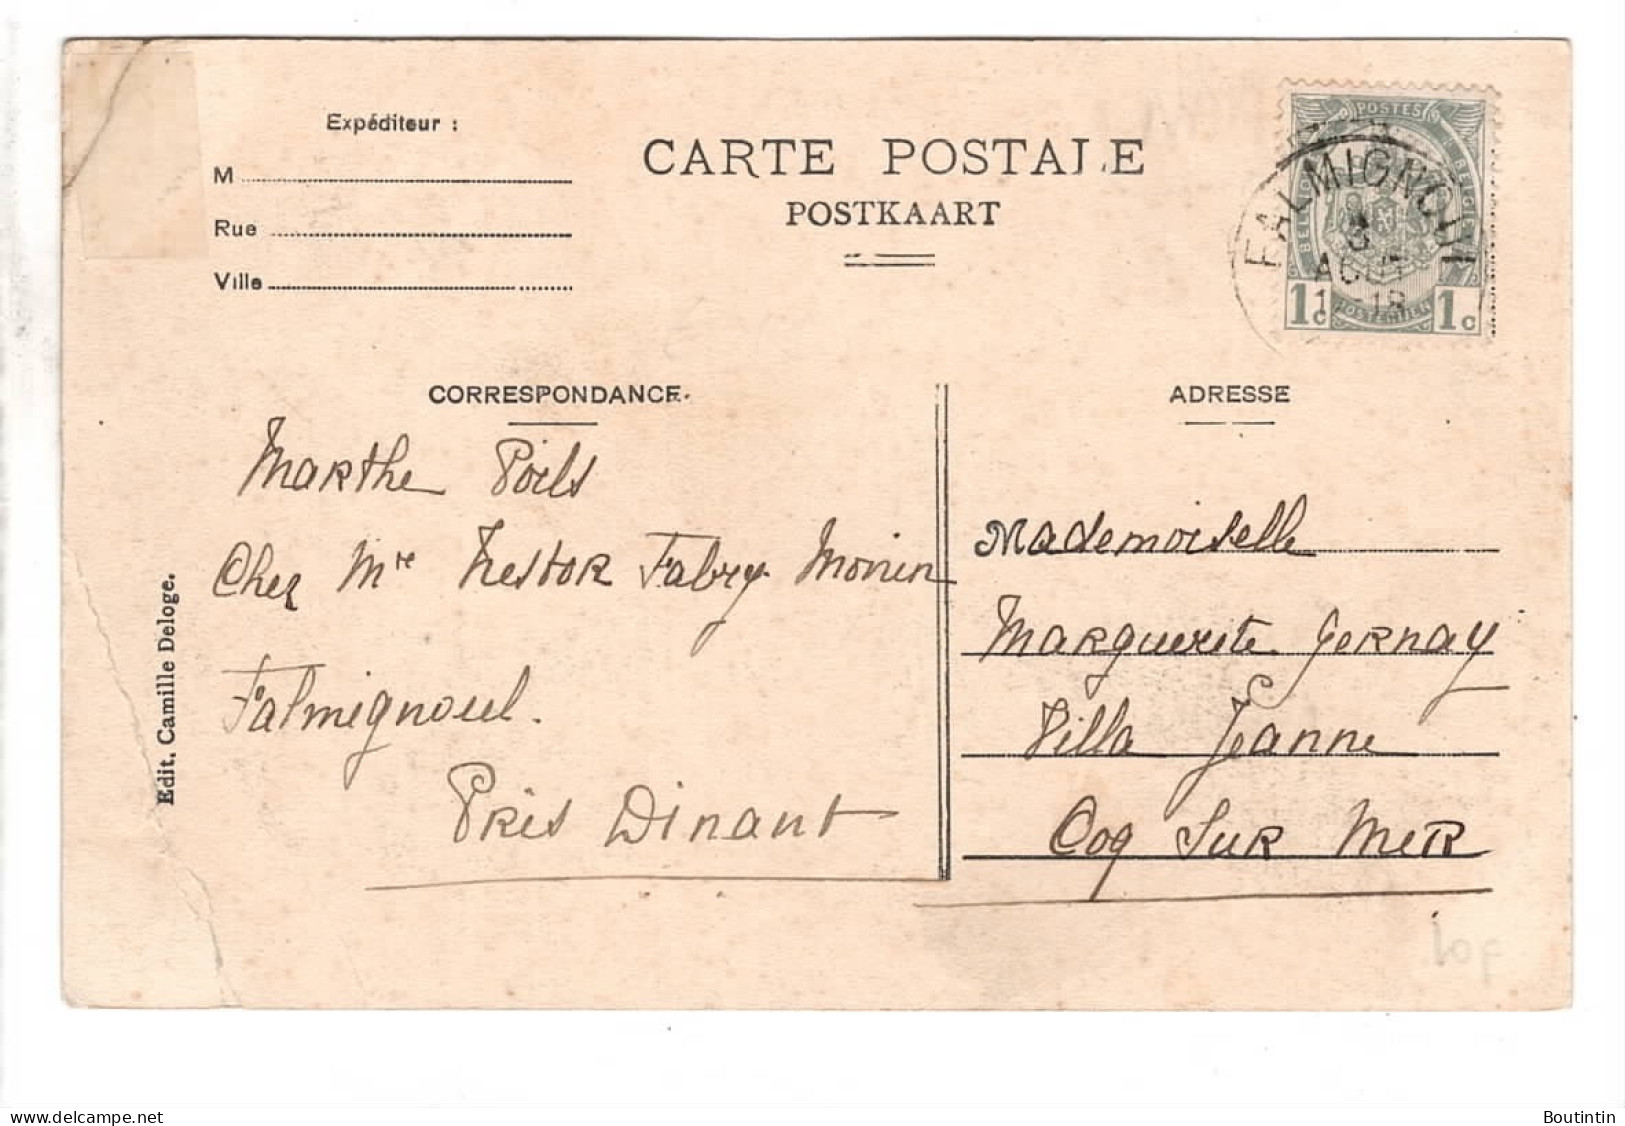 Expéditeur :
M
Rue
Ville
CARTE POSTALE
POSTKAART
POSTES
BELGIQUE
FALMIGNOUL
3
AOUT
18
1c 1c
CORRESPONDANCE.
ADRESSE
Marthe Poils
Chez Mre Nestor Fabry Monin
Falmignoul.
Près Dinant
Mademoiselle
Marguerite Gernay
Villa Jeanne
Coq sur Mer
Edit. Camille Deloge.
delcampe.net
Boutintin